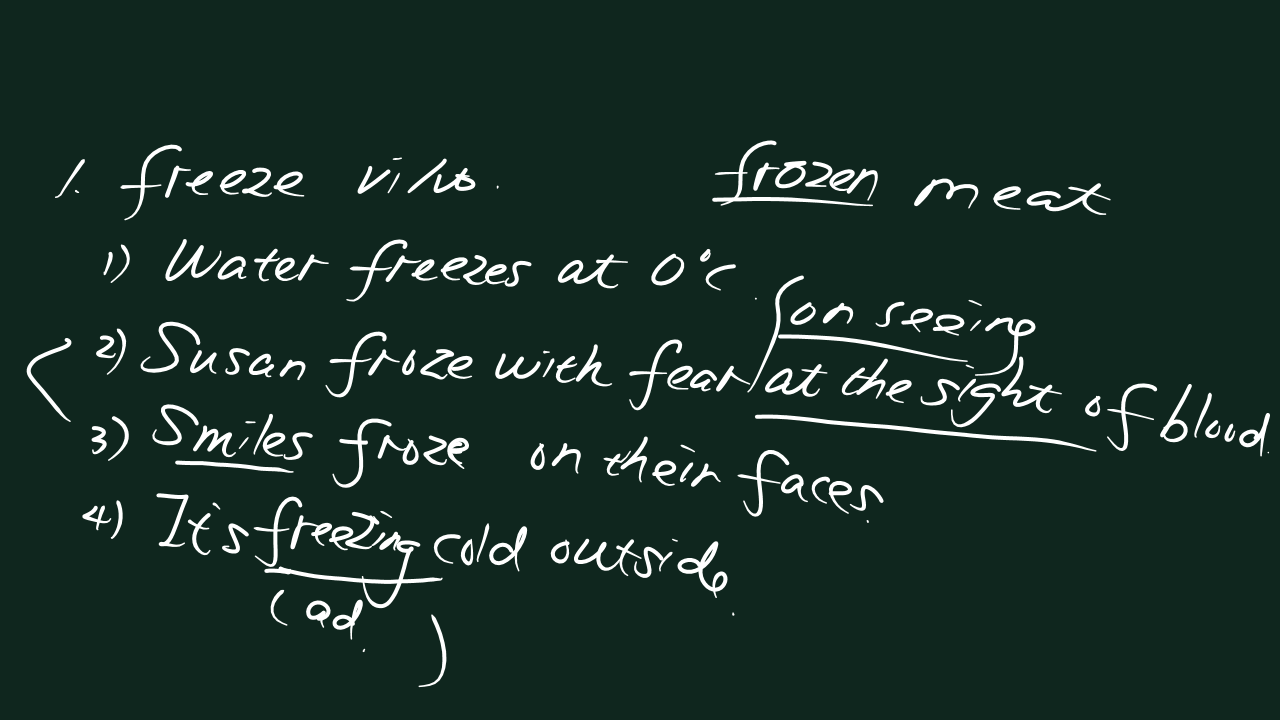 1. freeze vi/vt. frozen meat
1) Water freezes at 0°C.
on seeing
2) Susan froze with fear/at the sight of blood.
3) Smiles froze on their faces.
4) It's freezing cold outside.
(ad. )